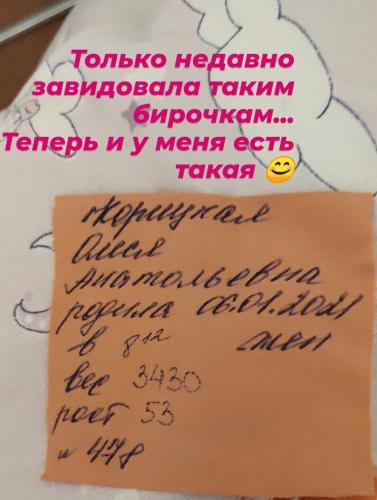 Только недавно
завидовала таким
бирочкам...
Теперь и у меня есть
такая 😊
Корицкая
Олеся
Анатольевна
родила 06.01.2021
в 8¹² жен
вес 3430
рост 53